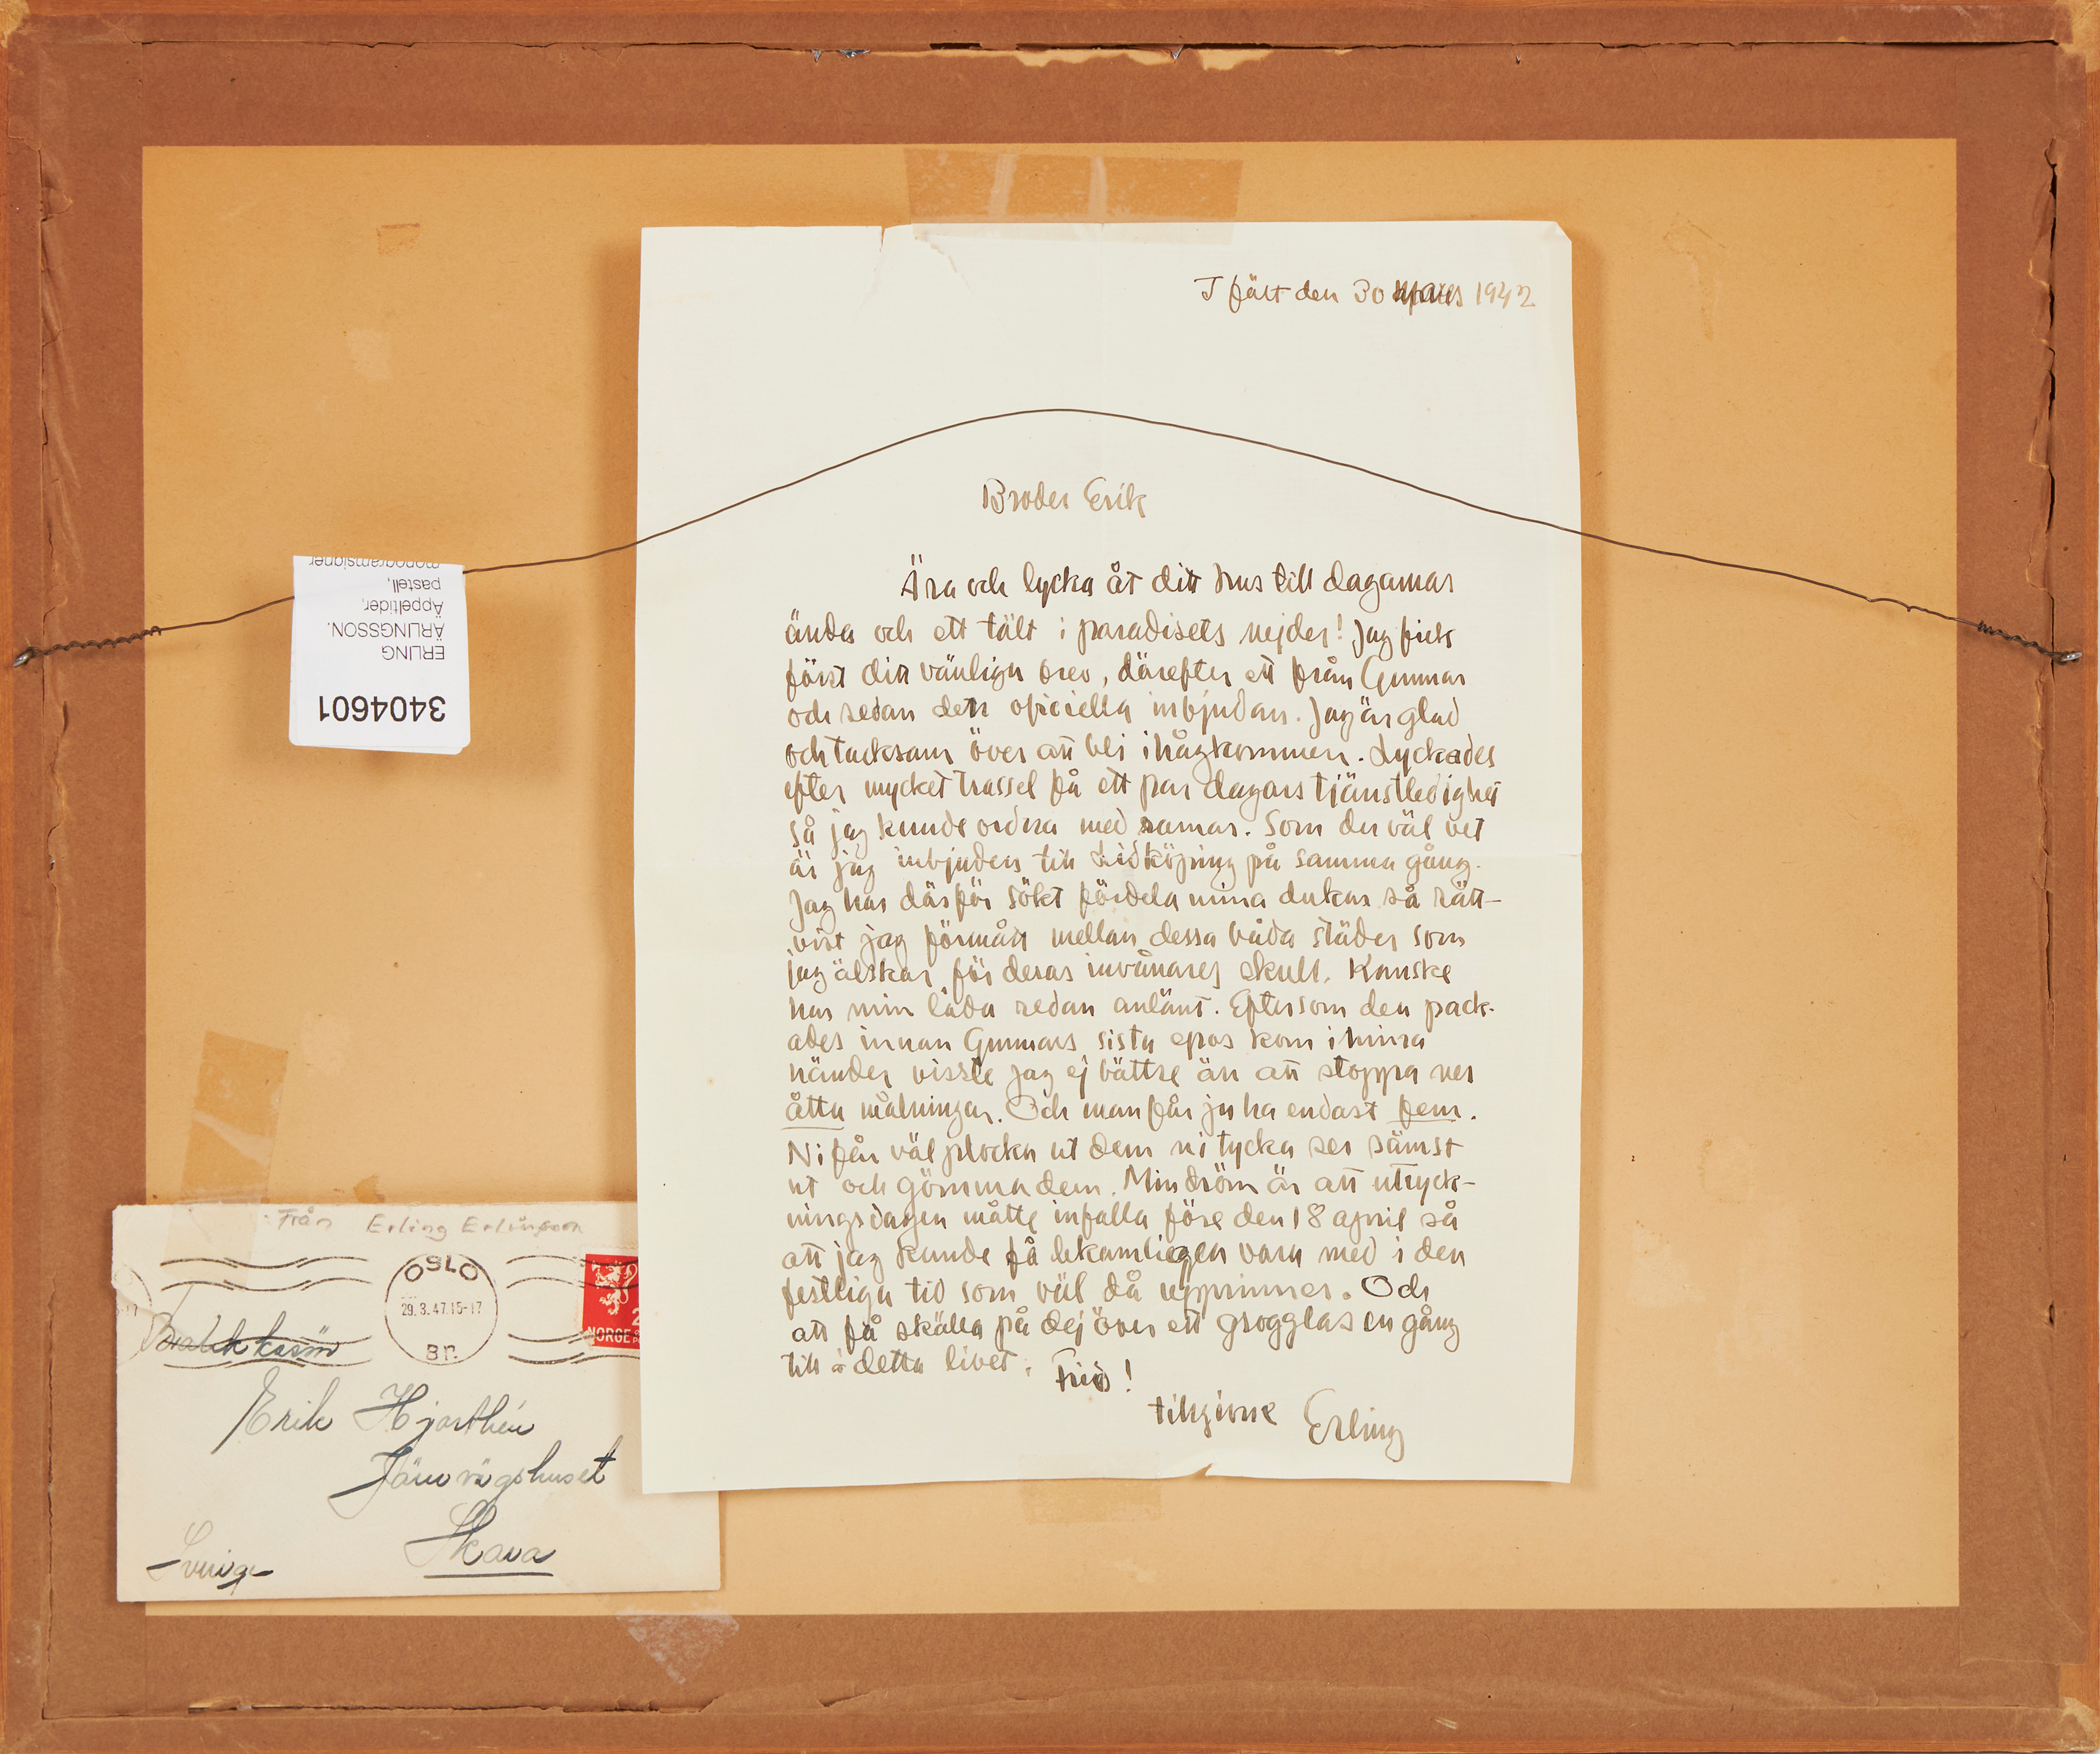 I fält den 30 mars 1942
Broder Erik
Ära och lycka åt ditt hus till dagarnas
ända och ett tält i paradisets nejder! Jag fick
först ditt vänliga brev, därefter ett från Gunnar
och sedan den oficiella inbjudan. Jag är glad
och tacksam över att bli ihågkommen. Lyckades
efter mycket trassel få ett par dagars tjänstledighet
så jag kunde ordna med ramar. Som du väl vet
är jag inbjuden till Lidköping på samma gång.
Jag har därför sökt fördela mina dukar så rätt-
vist jag förmått mellan dessa båda städer som
jag älskar för deras invånares skull. Kanske
har min låda redan anlänt. Eftersom den pack-
ades innan Gunnars sista epos kom i mina
händer visste jag ej bättre än att stoppa ner
åtta målningar. Och man får ju ha endast fem.
Ni får väl plocka ut dem ni tycka ser sämst
ut och gömma dem. Min dröm är att utryck-
ningsdagen måtte infalla före den 18 april så
att jag kunde få lekamligen vara med i den
festliga tid som väl då upprinner. Och
att få skälla på dej över ett grogglas en gång
till i detta livet. Frid!
tillgivne Erling
3404601
ERLING
ÄRLINGSSON.
Äppeltider,
pastell,
monogramsigner
Från Erling Erlingsson
OSLO
29.3.47.15-17
Br.
2
NORGE
Erik Hjorthén
Järnvägshuset
Skara
Sverige